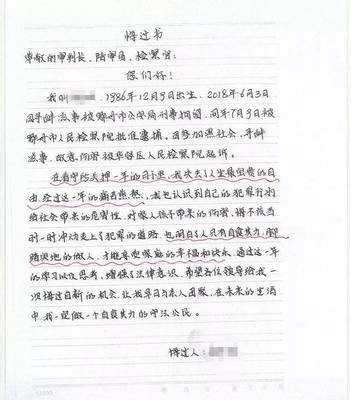 悔过书
尊敬的审判长、陪审员、检察官:
您们好!
我叫 ,1986年12月9日出生,2018年6月3日
因寻衅滋事被鄂州市公安局刑事拘留,同年7月9日被
鄂州市人民检察院批准逮捕。因参加黑社会、寻衅
滋事、故意伤害被华容区人民检察院起诉。
在看守所关押一年的日子里,我失去了人生最宝贵的自
由,经过这一年的痛苦煎熬,我也认识到自己的犯罪行为
给社会带来的危害性,对家人很不带来的伤害,悔不该当
时一时冲动走上了犯罪的道路,也明白了人只有自食其力,脚
踏实地的做人,才能享受家庭的幸福和快乐,通过这一年
的学习以及思考,增强了法律意识,希望各位领导给我一
次悔过自新的机会,让我早日与家人团聚,在未来的生活
中,我一定做一个自食其力的守法公民。
悔过人: